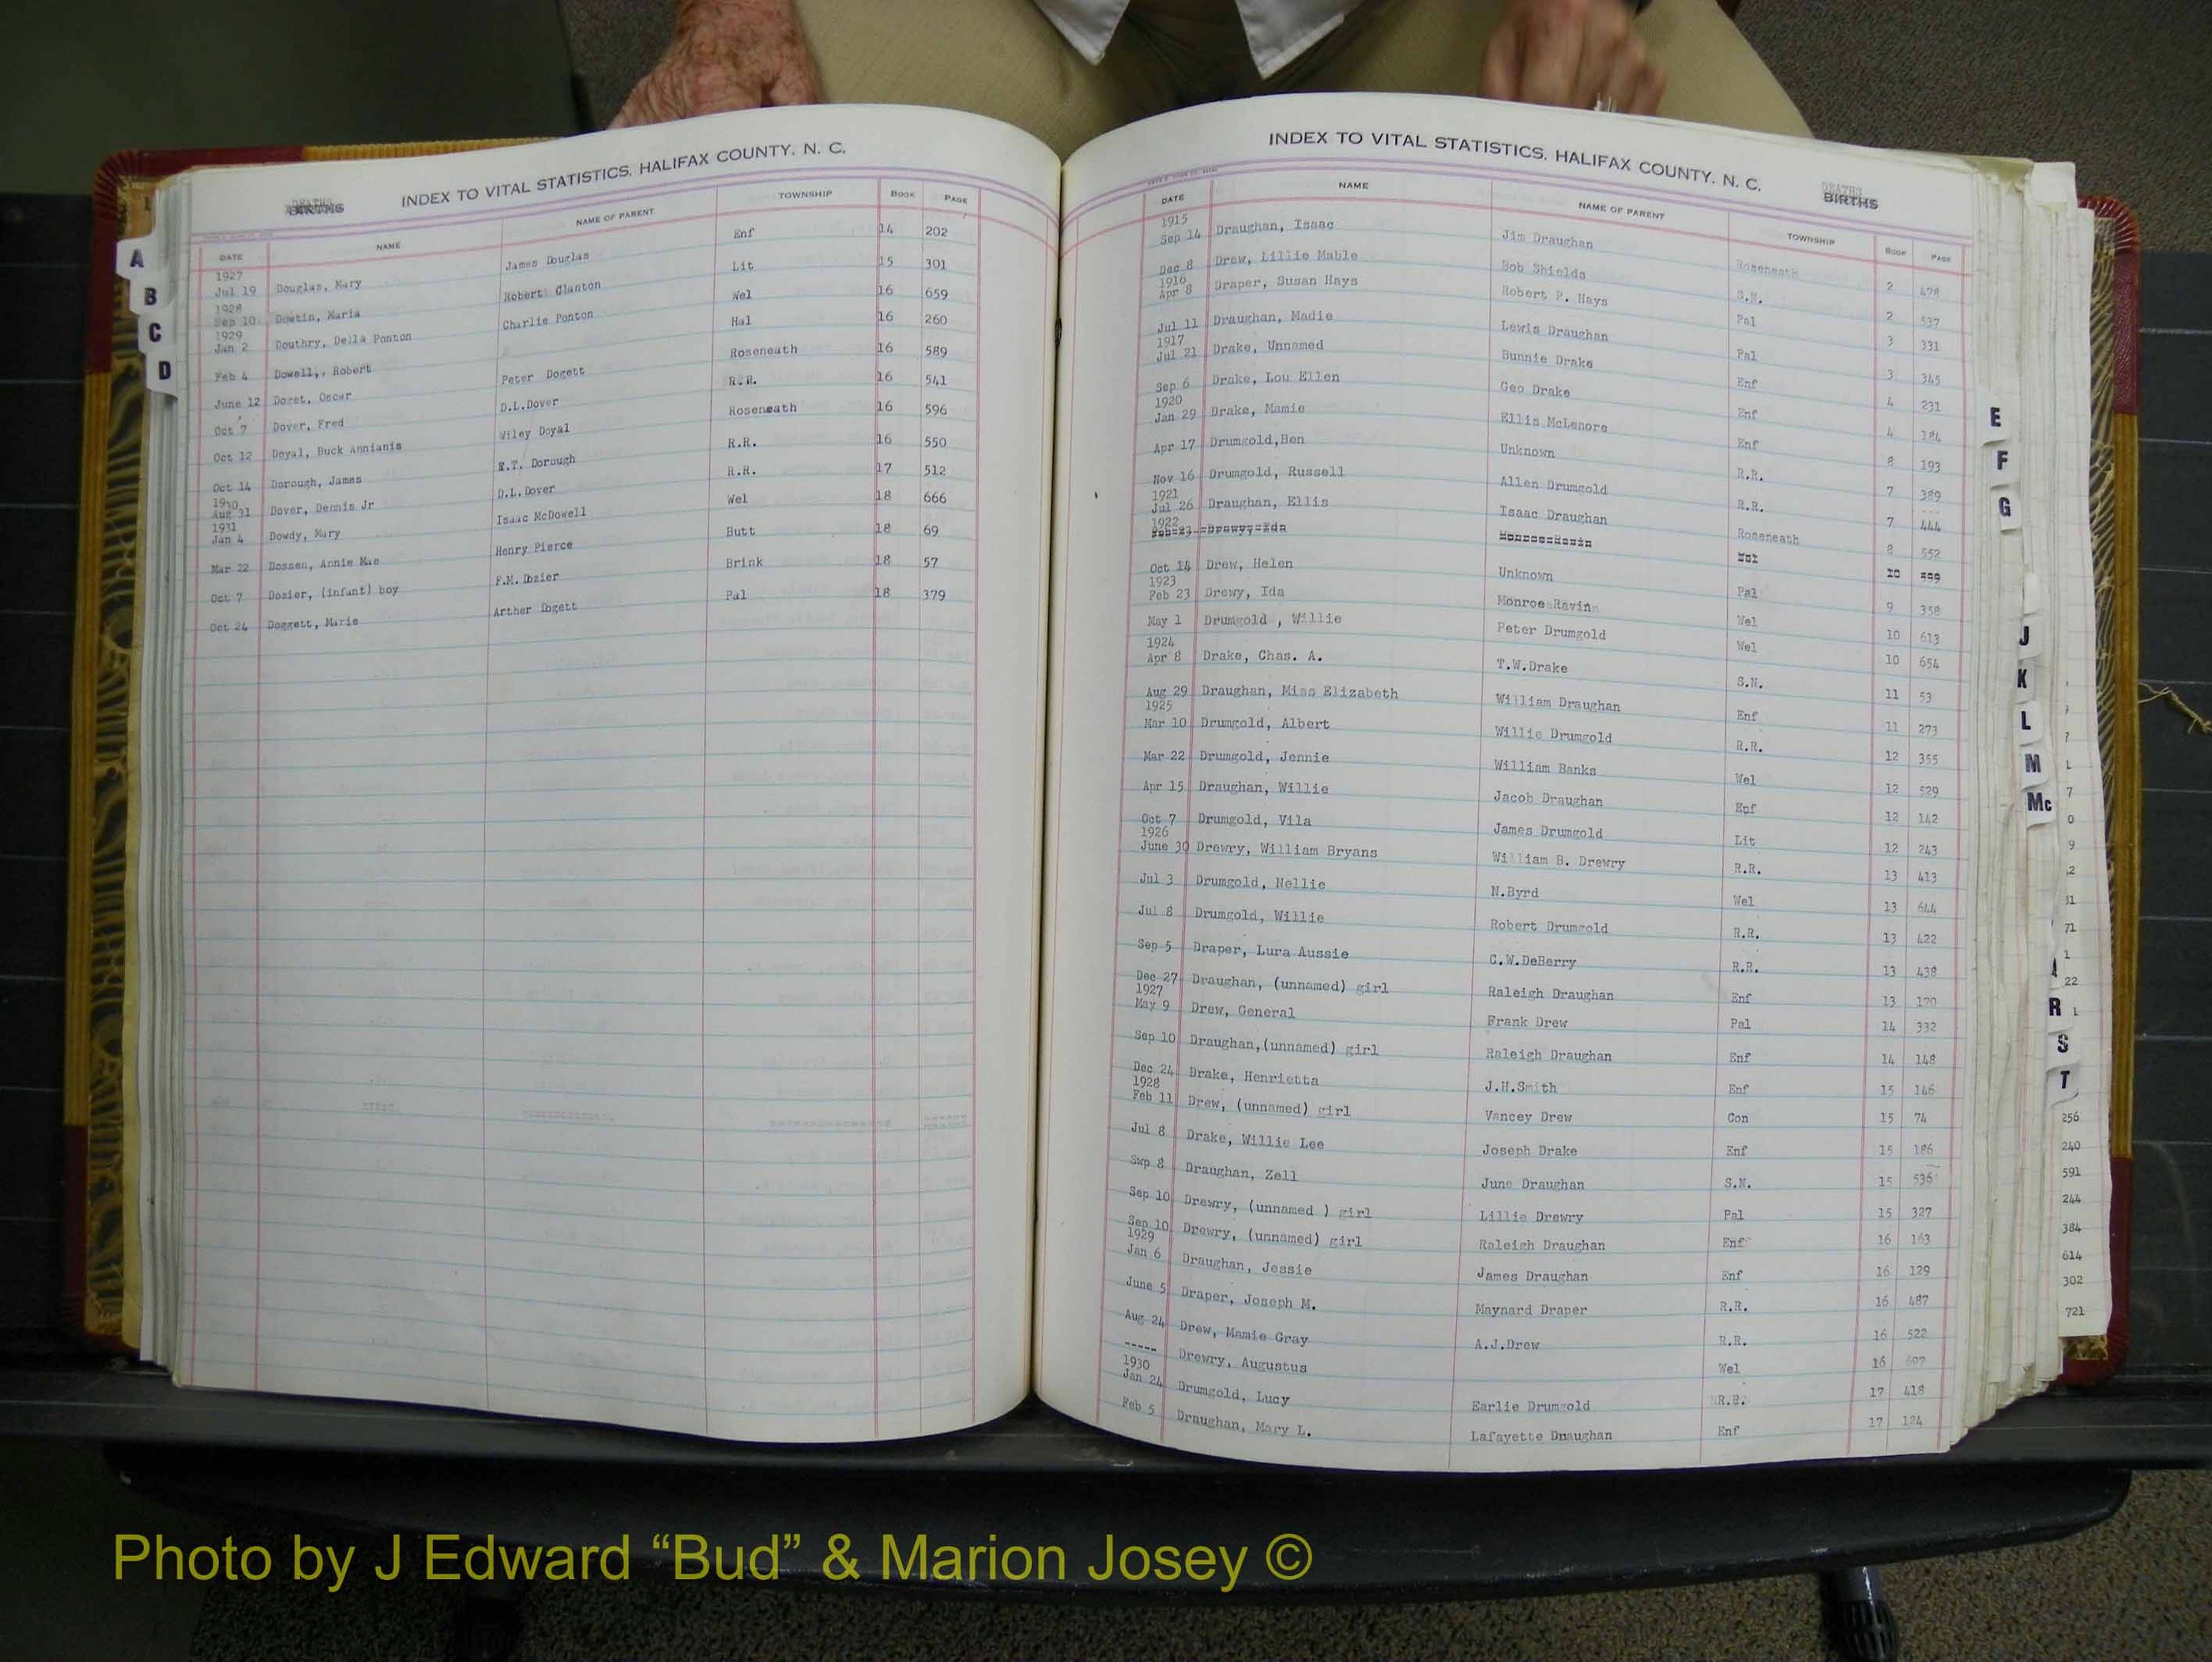 INDEX TO VITAL STATISTICS, HALIFAX COUNTY, N. C.
DEATHS
BIRTHS
DATE NAME NAME OF PARENT TOWNSHIP BOOK PAGE
1927
Jul 19 Douglas, Mary James Douglas Enf 14 202
1928
Sep 10 Dowtin, Maria Robert Clanton Lit 15 301
1929
Jan 2 Douthry, Della Ponton Charlie Ponton Wel 16 659
Feb 4 Dowell,, Robert Hal 16 260
June 12 Doget, Oscar Peter Dogett Roseneath 16 589
Oct 7 Dover, Fred D.L.Dover R.R. 16 541
Oct 12 Doyal, Buck Annianis Wiley Doyal Roseneath 16 596
Oct 14 Dorough, James R.T. Dorough R.R. 16 550
1930
Aug 31 Dover, Dennis Jr D.L.Dover R.R. 17 512
1931
Jan 4 Dowdy, Mary Isaac McDowell Wel 18 666
Mar 22 Dossen, Annie Mae Henry Pierce Butt 18 69
Oct 7 Dozier, (infant) boy F.M. Dozier Brink 18 57
Oct 24 Doggett, Marie Arther Dogett Pal 18 379
A
B
C
D
INDEX TO VITAL STATISTICS, HALIFAX COUNTY, N. C.
DEATHS
BIRTHS
DATE NAME NAME OF PARENT TOWNSHIP BOOK PAGE
1915
Sep 14 Draughan, Isaac Jim Draughan Roseneath 2 478
Dec 8 Drew, Lillie Mable Bob Shields S.N. 2 537
1916
Apr 8 Draper, Susan Hays Robert P. Hays Pal 3 331
Jul 11 Draughan, Madie Lewis Draughan Pal 3 345
1917
Jul 21 Drake, Unnamed Bunnie Drake Enf 4 231
Sep 6 Drake, Lou Ellen Geo Drake Enf 4 184
1920
Jan 29 Drake, Mamie Ellis McLenore Enf 8 193
Apr 17 Drumgold,Ben Unknown R.R. 7 389
Nov 16 Drumgold, Russell Allen Drumgold R.R. 7 444
1921
Jul 26 Draughan, Ellis Isaac Draughan Roseneath 8 552
1922
Oct 14 Drew, Helen Unknown Pal 9 358
1923
Feb 23 Drewy, Ida Monroe Ravin Wel 10 613
May 1 Drumgold , Willie Peter Drumgold Wel 10 654
1924
Apr 8 Drake, Chas. A. T.W.Drake S.N. 11 53
Aug 29 Draughan, Miss Elizabeth William Draughan Enf 11 273
1925
Mar 10 Drumgold, Albert Willie Drumgold R.R. 12 355
Mar 22 Drumgold, Jennie William Banks Wel 12 529
Apr 15 Draughan, Willie Jacob Draughan Enf 12 142
Oct 7 Drumgold, Vila James Drumgold Lit 12 243
1926
June 30 Drewry, William Bryans William B. Drewry R.R. 13 413
Jul 3 Drumgold, Nellie N.Byrd Wel 13 644
Jul 8 Drumgold, Willie Robert Drumgold R.R. 13 422
Sep 5 Draper, Lura Aussie C.W.DeBerry R.R. 13 438
Dec 27 Draughan, (unnamed) girl Raleigh Draughan Enf 13 170
1927
May 9 Drew, General Frank Drew Pal 14 332
Sep 10 Draughan,(unnamed) girl Raleigh Draughan Enf 14 148
Dec 24 Drake, Henrietta J.H.Smith Enf 15 146
1928
Feb 11 Drew, (unnamed) girl Vancey Drew Con 15 74
Jul 8 Drake, Willie Lee Joseph Drake Enf 15 186
Swp 8 Draughan, Zell June Draughan S.N. 15 536
Sep 10 Drewry, (unnamed ) girl Lillie Drewry Pal 15 327
Sep 10 Drewry, (unnamed) girl Raleigh Draughan Enf 16 163
1929
Jan 6 Draughan, Jessie James Draughan Enf 16 129
June 5 Draper, Joseph M. Maynard Draper R.R. 16 487
Aug 24 Drew, Mamie Gray A.J.Drew R.R. 16 522
----- Drewry, Augustus Wel 16 697
1930
Jan 24 Drumgold, Lucy Earlie Drumgold R.R. 17 418
Feb 5 Draughan, Mary L. Lafayette Dnaughan Enf 17 124
E
F
G
J
K
L
M
Mc
R
S
T
256
240
591
244
384
614
302
721
Photo by J Edward “Bud” & Marion Josey ©